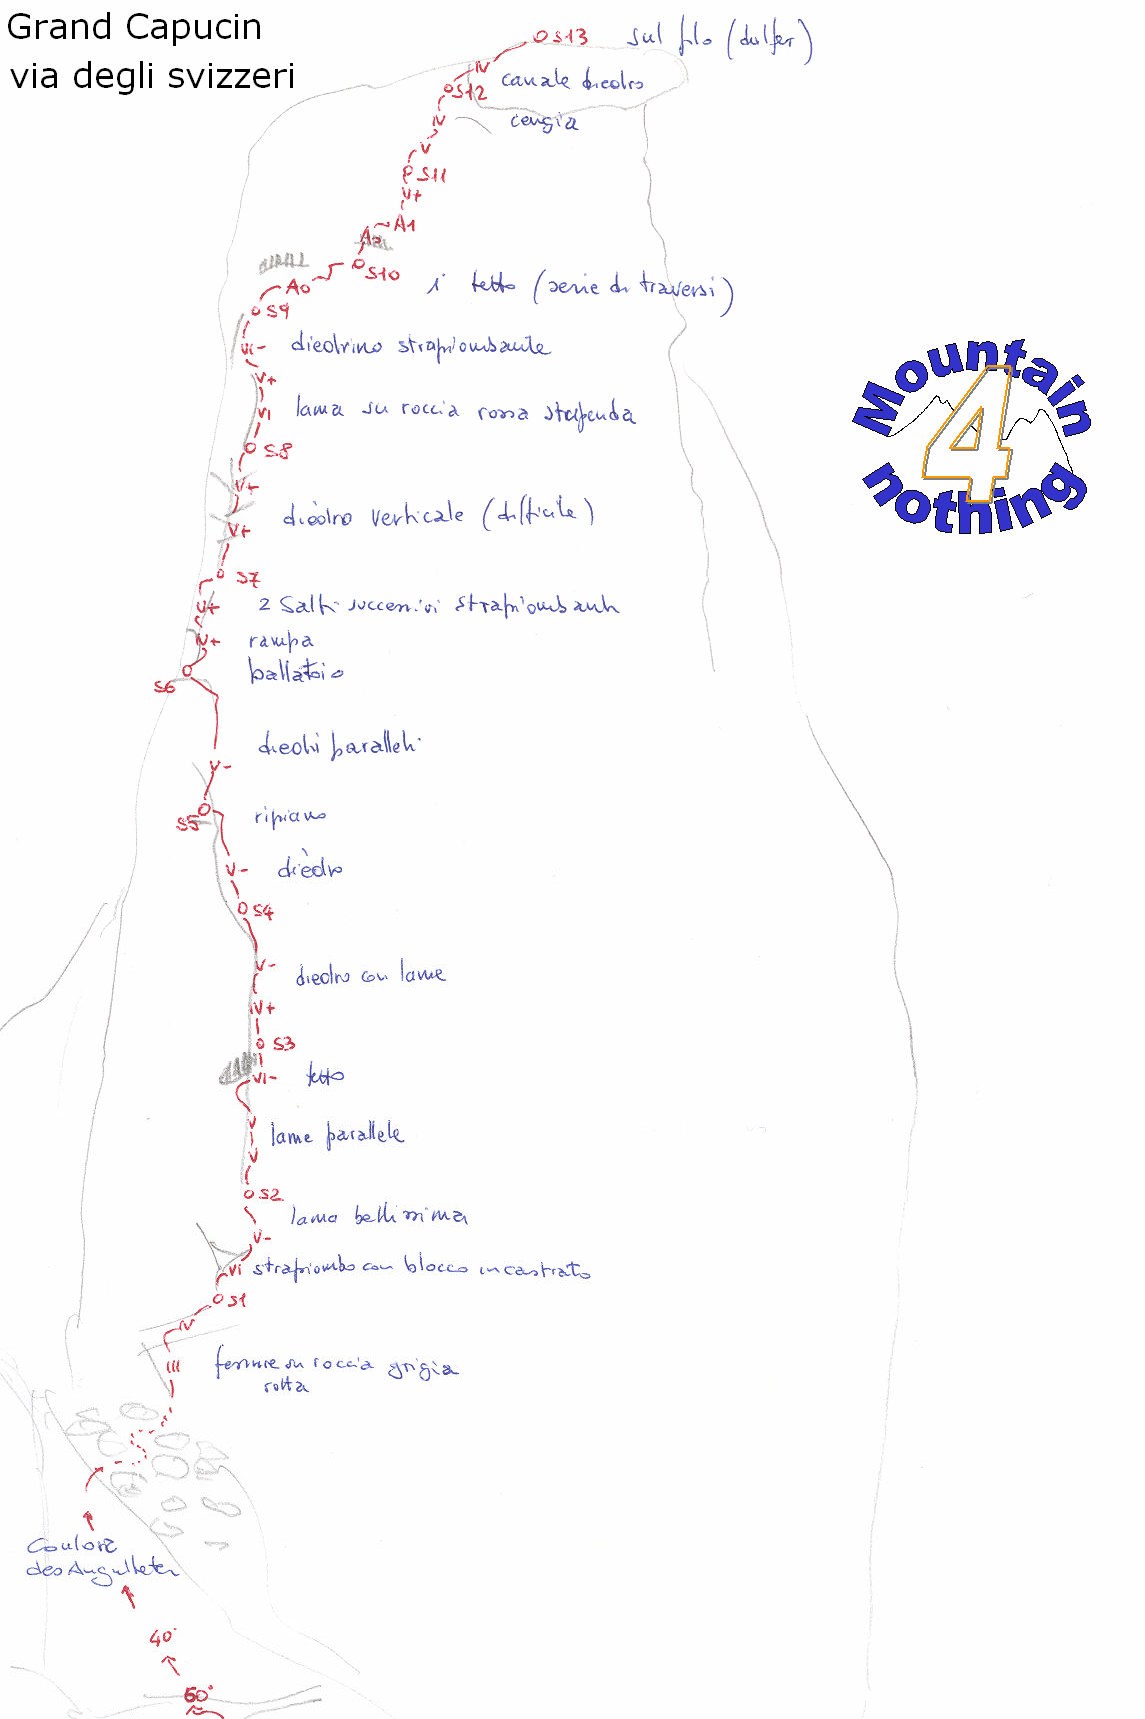 Grand Capucin
via degli svizzeri
S13 sul filo (dulfer)
IV canale diedro
S12
IV cengia
V
S11
V+
A1
A2
S10
A0 i tetto (serie di traversi)
S9
VI- diedrino strapiombante
V+
VI lama su roccia rossa stupenda
S8
V+
diedro verticale (difficile)
V+
S7
V+ 2 salti successivi strapiombanti
IV+ rampa
S6 ballatoio
diedri paralleli
V-
S5 ripiano
V- diedro
S4
V- diedro con lame
IV+
S3
VI- tetto
V
lame parallele
V
S2
lama bellissima
V-
VI strapiombo con blocco incastrato
S1
IV
III fessure su roccia grigia
rotta
Couloir
des Aiguillettes
40°
60°
Mountain
4
nothing